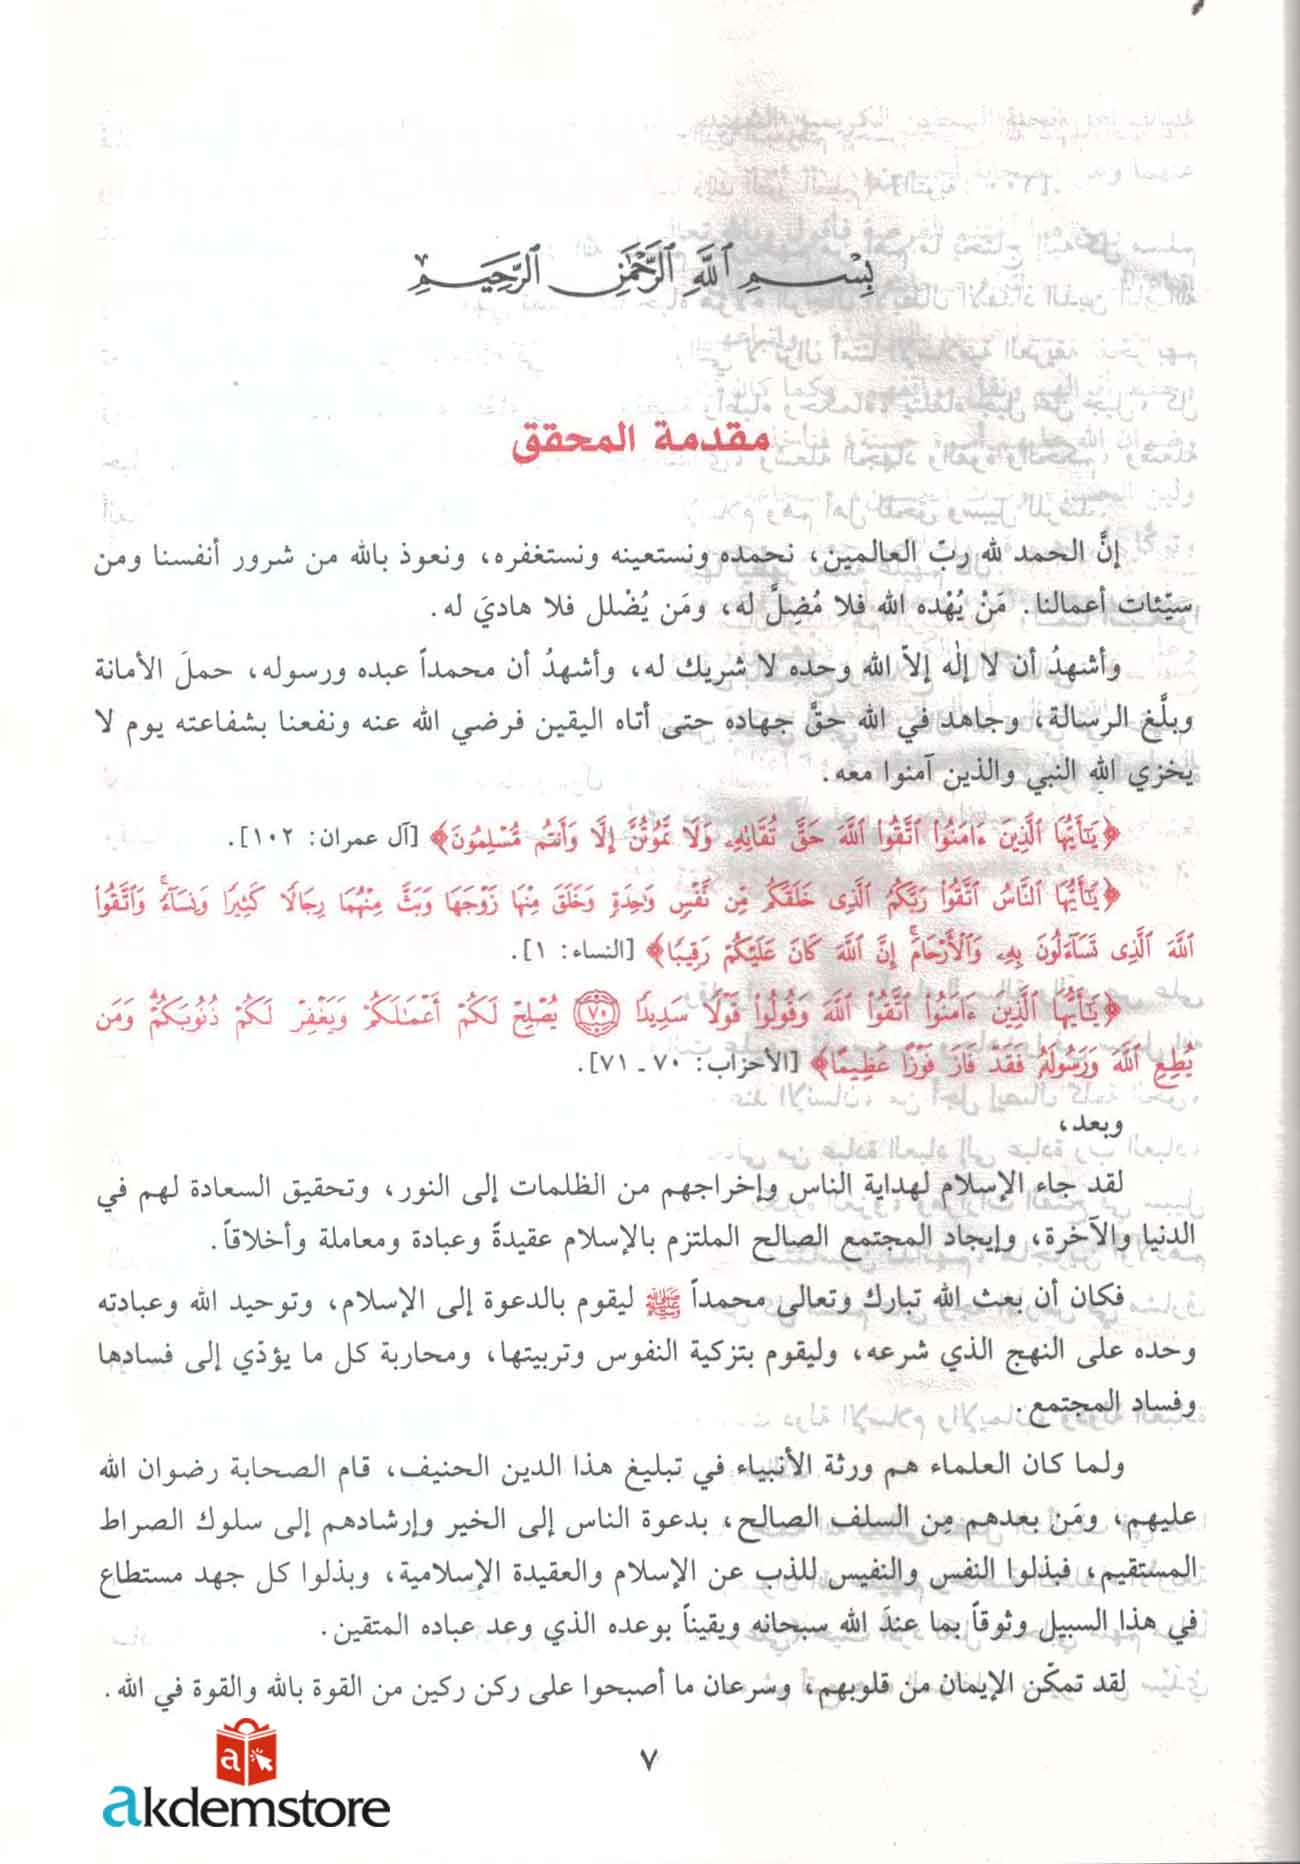 بِسْمِ اللَّهِ الرَّحْمَٰنِ الرَّحِيمِ
مقدمة المحقق
إنَّ الحمد لله ربّ العالمين، نحمده ونستعينه ونستغفره، ونعوذ بالله من شرور أنفسنا ومن
سيّئات أعمالنا. مَنْ يُهْده الله فلا مُضِلَّ له، ومَن يُضْلل فلا هاديَ له.
وأشهدُ أن لا إلٰه إلاّ الله وحده لا شريك له، وأشهدُ أن محمداً عبده ورسوله، حملَ الأمانة
وبلَّغ الرسالة، وجاهد في الله حقَّ جهاده حتى أتاه اليقين فرضي الله عنه ونفعنا بشفاعته يوم لا
يخزي الله النبي والذين آمنوا معه.
﴿يَٰٓأَيُّهَا ٱلَّذِينَ ءَامَنُوا۟ ٱتَّقُوا۟ ٱللَّهَ حَقَّ تُقَاتِهِۦ وَلَا تَمُوتُنَّ إِلَّا وَأَنتُم مُّسْلِمُونَ﴾ [آل عمران: ١٠٢].
﴿يَٰٓأَيُّهَا ٱلنَّاسُ ٱتَّقُوا۟ رَبَّكُمُ ٱلَّذِى خَلَقَكُم مِّن نَّفْسٍ وَٰحِدَةٍ وَخَلَقَ مِنْهَا زَوْجَهَا وَبَثَّ مِنْهُمَا رِجَالًا كَثِيرًا وَنِسَآءً ۚ وَٱتَّقُوا۟
ٱللَّهَ ٱلَّذِى تَسَآءَلُونَ بِهِۦ وَٱلْأَرْحَامَ ۚ إِنَّ ٱللَّهَ كَانَ عَلَيْكُمْ رَقِيبًا﴾ [النساء: ١].
﴿يَٰٓأَيُّهَا ٱلَّذِينَ ءَامَنُوا۟ ٱتَّقُوا۟ ٱللَّهَ وَقُولُوا۟ قَوْلًا سَدِيدًا ۝٧٠ يُصْلِحْ لَكُمْ أَعْمَٰلَكُمْ وَيَغْفِرْ لَكُمْ ذُنُوبَكُمْ ۗ وَمَن
يُطِعِ ٱللَّهَ وَرَسُولَهُۥ فَقَدْ فَازَ فَوْزًا عَظِيمًا﴾ [الأحزاب: ٧٠ ـ ٧١].
وبعد،
لقد جاء الإسلام لهداية الناس وإخراجهم من الظلمات إلى النور، وتحقيق السعادة لهم في
الدنيا والآخرة، وإيجاد المجتمع الصالح الملتزم بالإسلام عقيدةً وعبادة ومعاملة وأخلاقاً.
فكان أن بعث الله تبارك وتعالى محمداً ﷺ ليقوم بالدعوة إلى الإسلام، وتوحيد الله وعبادته
وحده على النهج الذي شرعه، وليقوم بتزكية النفوس وتربيتها، ومحاربة كل ما يؤدّي إلى فسادها
وفساد المجتمع.
ولما كان العلماء هم ورثة الأنبياء في تبليغ هذا الدين الحنيف، قام الصحابة رضوان الله
عليهم، ومَن بعدهم مِن السلف الصالح، بدعوة الناس إلى الخير وإرشادهم إلى سلوك الصراط
المستقيم، فبذلوا النفس والنفيس للذب عن الإسلام والعقيدة الإسلامية، وبذلوا كل جهد مستطاع
في هذا السبيل وثوقاً بما عندَ الله سبحانه ويقيناً بوعده الذي وعد عباده المتقين.
لقد تمكّن الإيمان من قلوبهم، وسرعان ما أصبحوا على ركن ركين من القوة بالله والقوة في الله.
٧
a
akdemstore